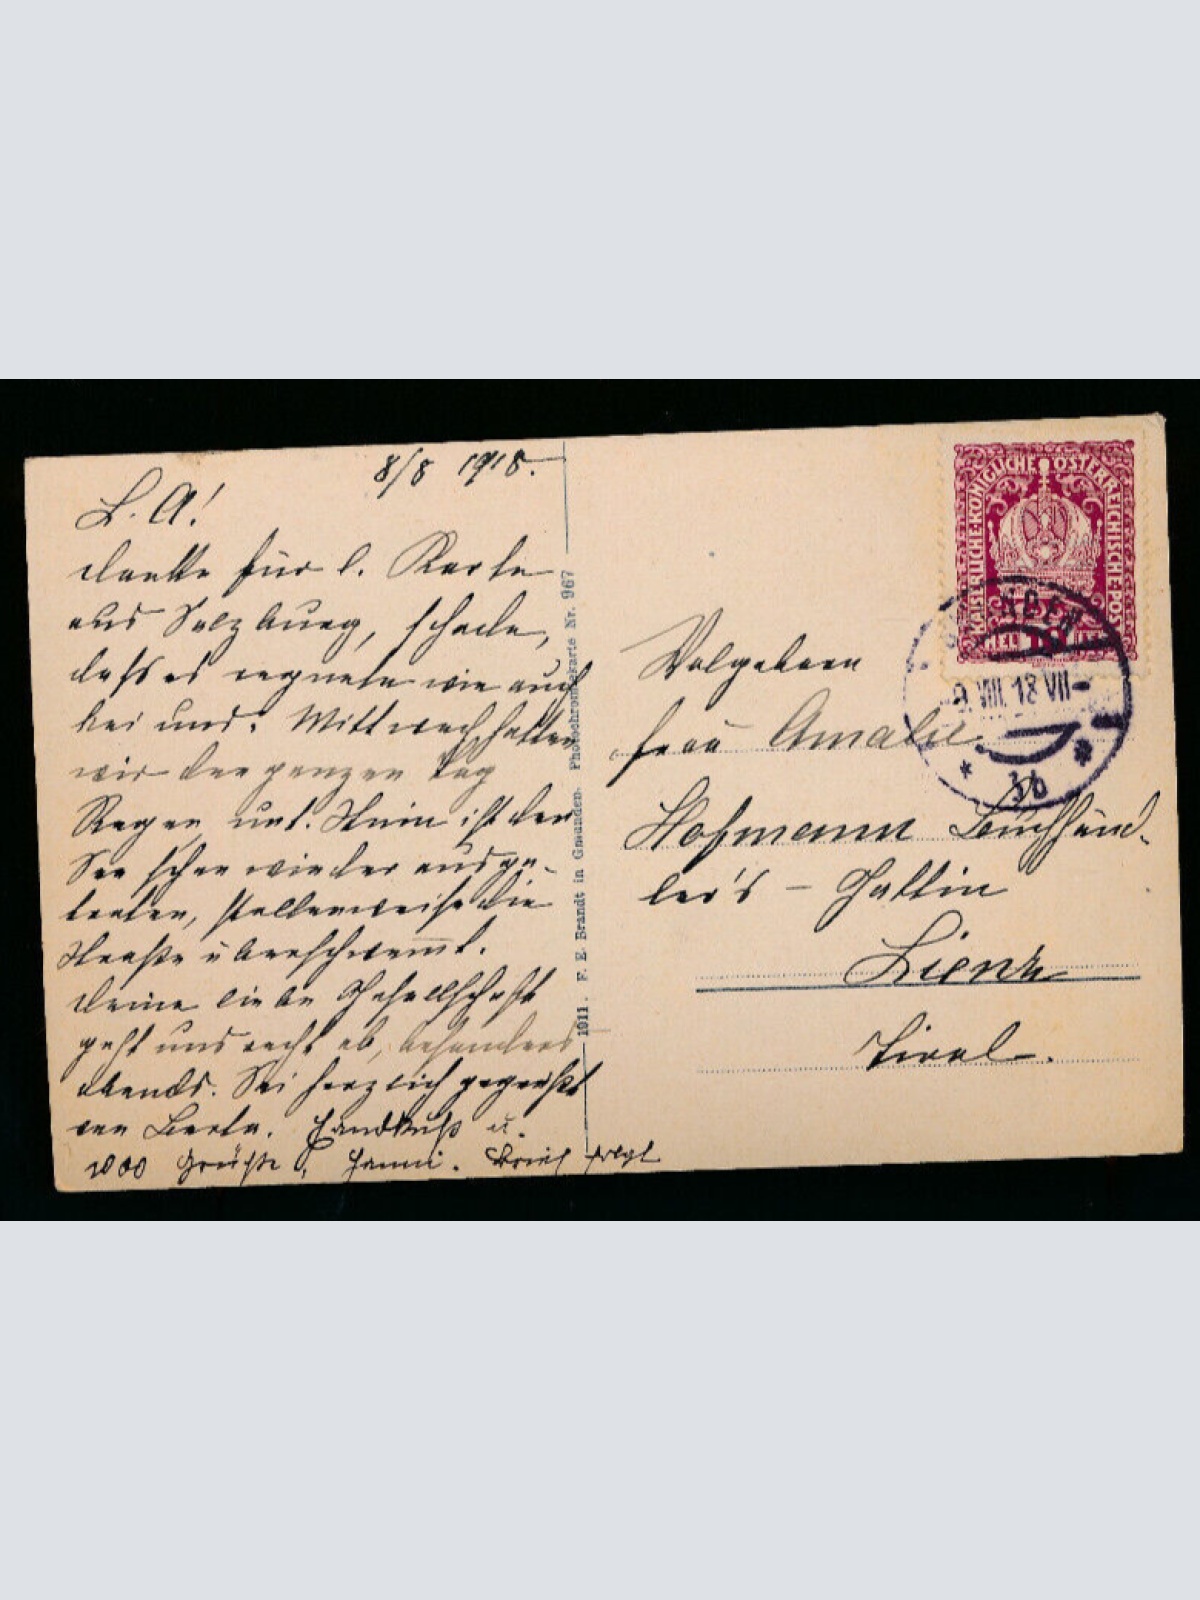 8/8 1918.
L. A!
danke für l. Karte
aus Salzburg, schade,
daß es regnete wie auch
bei uns. Mittwoch hatten
wir den ganzen Tag
Regen, ist der
See schon wieder ausge-
treten, stellenweise die
Straße überschwemmt.
Deine liebe Gesellschaft
geht uns recht ab, besonders
abends. Sei herzlich gegrüßt
von Berta. Handkuß u.
1000 Grüße, Hanni. Brief folgt
1911. F. E. Brandt in Gmunden. Photochromiekarte Nr. 967
KAISERLICHE·KÖNIGLICHE·ÖSTERREICHISCHE·POST
9. VIII. 18 VII
* 3b *
Wolgeboren
Frau Amalie
Hofmann Buchhänd-
ler's - Gattin
Lienz
Tirol.